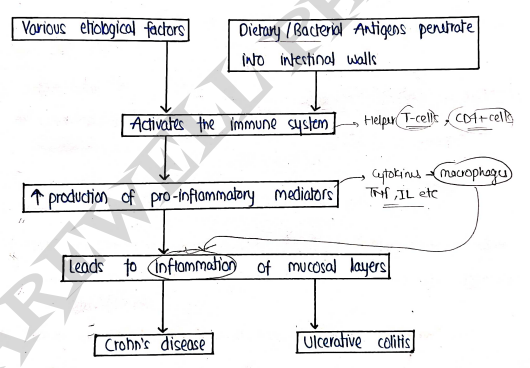 Various etiological factors
Dietary/Bacterial Antigens penetrate
into intestinal walls
Activates the immune system
Helper T-cells, CD4+cells
↑ production of pro-inflammatory mediators
Cytokines macrophages
TNF, IL etc
Leads to inflammation of mucosal layers
Crohn's disease
Ulcerative colitis